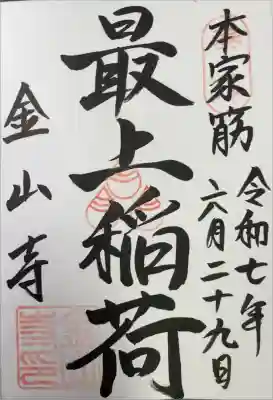 本家筋
令和七年
六月二十九日
最上稲荷
金山寺